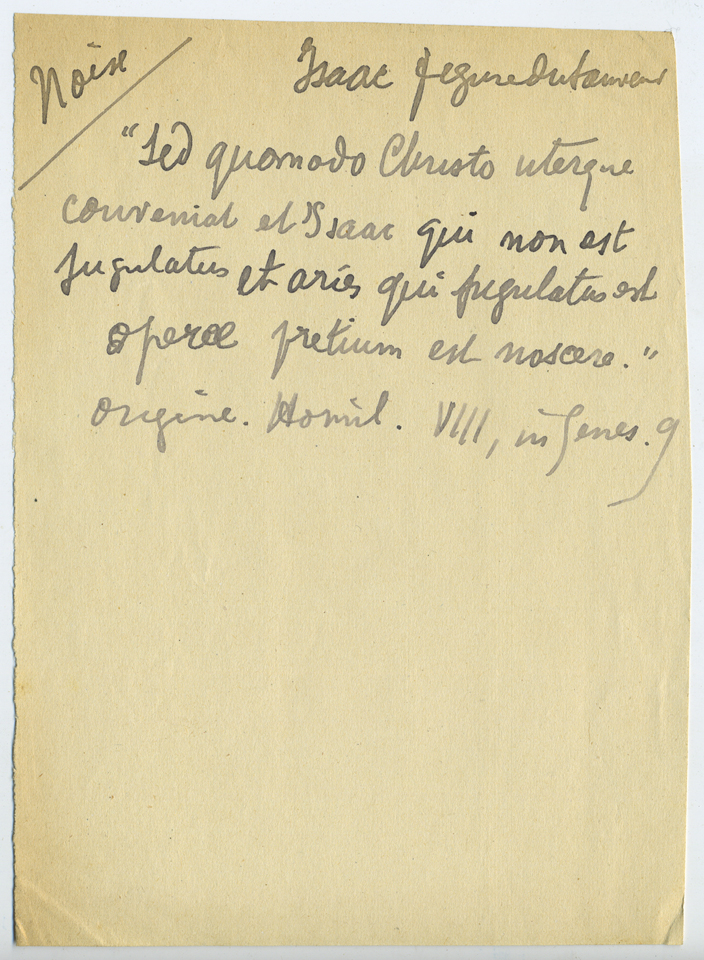 Noise
Isaac figure du Sauveur
"Sed quomodo Christo uterque
conveniat et Isaac qui non est
jugulatus et aries qui jugulatus est
operæ pretium est noscere."
Origine. Homil. VIII, in Genes. 9